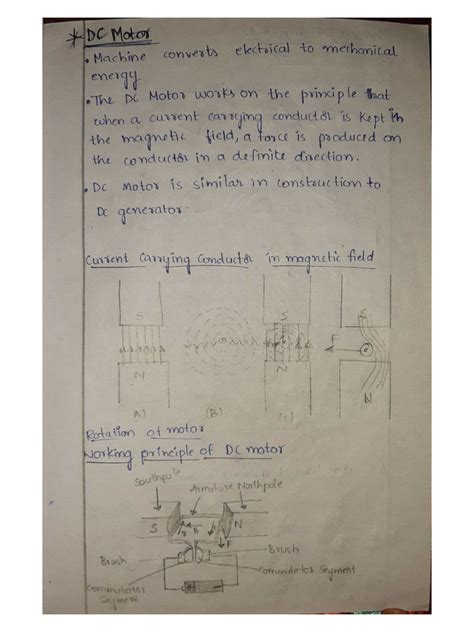 * DC Motor
• Machine converts electrical to mechanical
energy
• The DC Motor works on the principle that
when a current carrying conductor is kept in
the magnetic field, a force is produced on
the conductor in a definite direction.
• DC Motor is similar in construction to
DC generator.
Current Carrying Conductor in magnetic field
S S S
F
N N N
A) (B) (C)
Rotation of motor
Working principle of DC motor
Southpole
Armature Northpole
S N
F
Brush Brush
Commutator Segment
Commutator
Segment